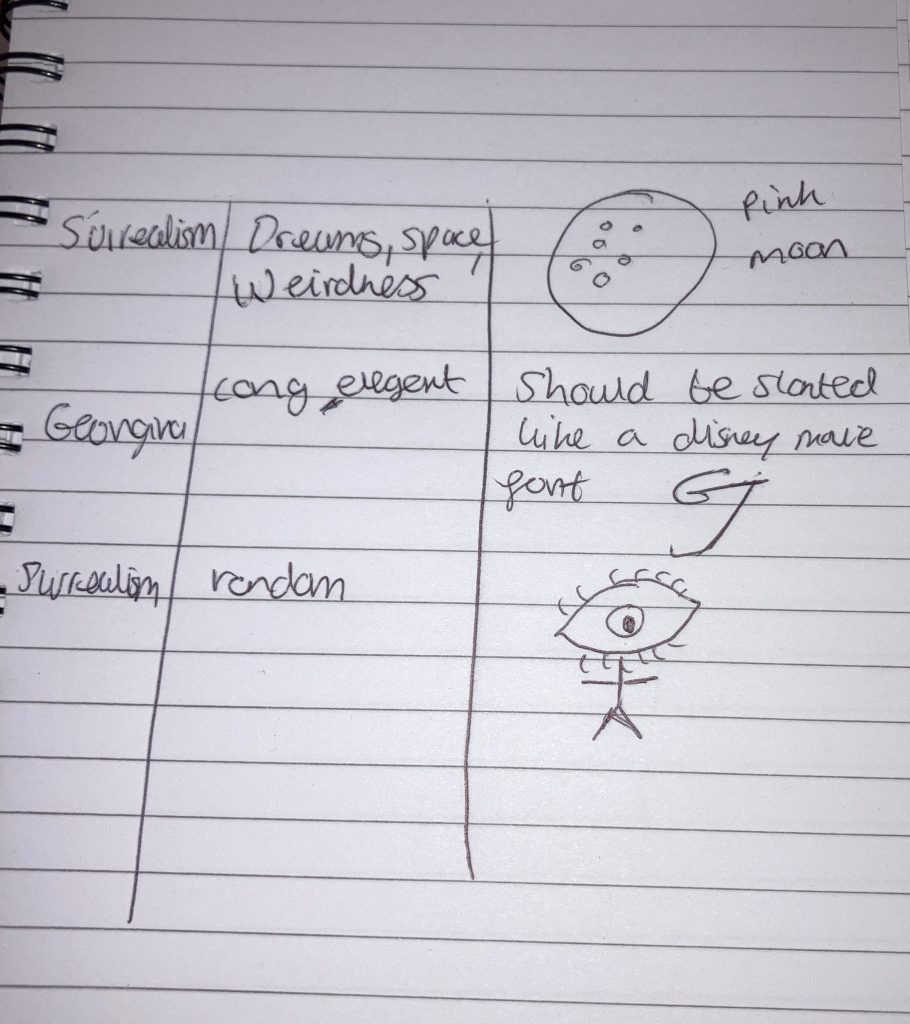 Surrealism Dreams, space,
Weirdness
pink
moon
Georgina long elegent
Should be slanted
like a disney movie
font G J
Surrealism random